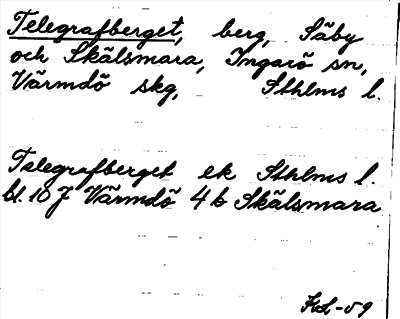 Telegrafberget, berg, Säby
och Skälsmara, Ingarö sn,
Värmdö skg, Sthlms l.
Telegrafberget ek Sthlms l.
bl. 10 J Värmdö 4 b Skälsmara